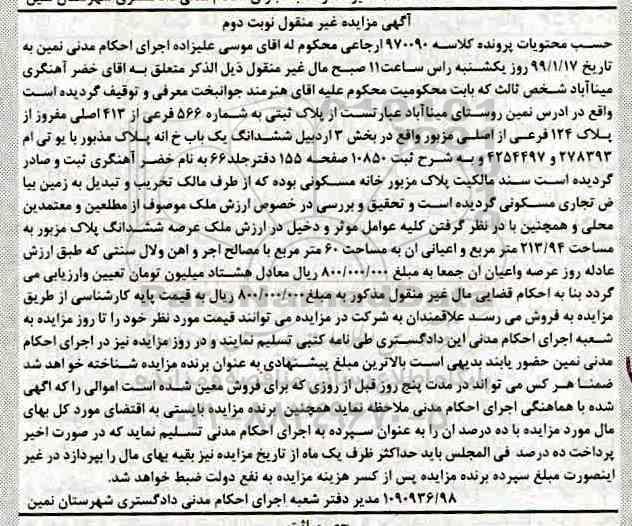 آگهی مزایده غیر منقول نوبت دوم
حسب محتویات پرونده کلاسه ۹۷۰۰۹۰ ارجاعی محکوم له اقای موسی علیزاده اجرای احکام مدنی نمین به
تاریخ ۹۹/۱/۱۷ روز یکشنبه راس ساعت۱۱ صبح مال غیر منقول ذیل الذکر متعلق به اقای خضر آهنگری
میناآباد شخص ثالث که بابت محکومیت محکوم علیه اقای هنرمند جوانبخت معرفی و توقیف گردیده است
واقع در ادرس نمین روستای میناآباد عبارتست از پلاک ثبتی به شماره ۵۶۶ فرعی از ۴۱۳ اصلی مفروز از
پلاک ۱۲۴ فرعی از اصلی مزبور واقع در بخش ۳ اردبیل ششدانگ یک باب خ انه پلاک مذبور با یو تی ام
۲۷۸۳۹۳ و ۴۲۵۴۴۹۷ و به شرح ثبت ۱۰۸۵۰ صفحه ۱۵۵ دفترجلد۶۶ به نام خضر آهنگری ثبت و صادر
گردیده است سند مالکیت پلاک مزبور خانه مسکونی بوده که از طرف مالک تخریب و تبدیل به زمین بیا
ض تجاری مسکونی گردیده است و تحقیق و بررسی در خصوص ارزش ملک موصوف از مطلعین و معتمدین
محلی و همچنین با در نظر گرفتن کلیه عوامل موثر و دخیل در ارزش ملک عرصه ششدانگ پلاک مزبور به
مساحت ۲۱۳/۹۴ متر مربع و اعیانی ان به مساحت ۶۰ متر مربع با مصالح اجر و اهن ولال سنتی که طبق ارزش
عادله روز عرصه واعیان ان جمعا به مبلغ ۸۰۰/۰۰۰/۰۰۰ ریال معادل هشتاد میلیون تومان تعیین وارزیابی می
گردد بنا به احکام قضایی مال غیر منقول مذکور به مبلغ۸۰۰/۰۰۰/۰۰۰ ریال به قیمت پایه کارشناسی از طریق
مزایده به فروش می رسد علاقمندان به شرکت در مزایده می توانند قیمت مورد نظر خود را تا روز مزایده به
شعبه اجرای احکام مدنی این دادگستری طی نامه کتبی تسلیم نمایند و در روز مزایده نیز در اجرای احکام
مدنی نمین حضور یابند بدیهی است بالاترین مبلغ پیشنهادی به عنوان برنده مزایده شناخته خواهد شد
ضمنا هر کس می تواند در مدت پنج روز قبل از روزی که برای فروش معین شده است اموالی را که اگهی
شده با هماهنگی اجرای احکام مدنی ملاحظه نماید همچنین برنده مزایده بایستی به اقتضای مورد کل بهای
مال مورد مزایده با ده درصد ان را به عنوان سپرده به اجرای احکام مدنی تسلیم نماید که در صورت اخیر
پرداخت ده درصد فی المجلس باید حداکثر ظرف یک ماه از تاریخ مزایده نیز بقیه بهای مال را بپردازد در غیر
اینصورت مبلغ سپرده برنده مزایده پس از کسر هزینه مزایده به نفع دولت ضبط خواهد شد.
۱۰۹۰۹۳۶/۹۸ مدیر دفتر شعبه اجرای احکام مدنی دادگستری شهرستان نمین